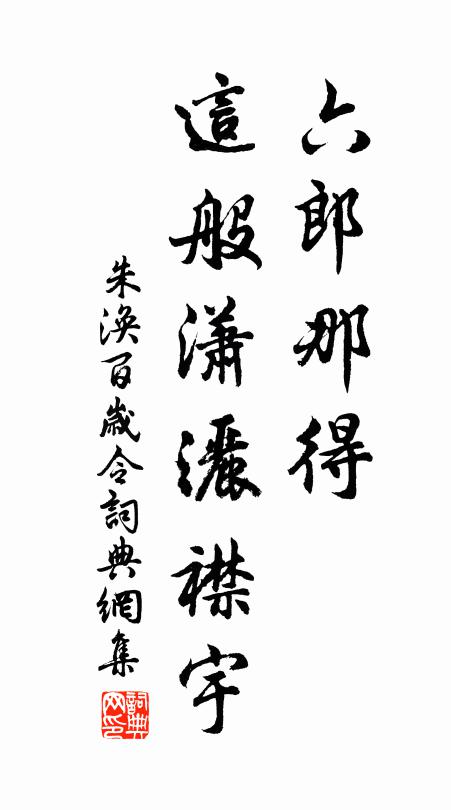 六郎那得
這般瀟灑襟宇
朱渙百歲令詞典網集
詞典网印